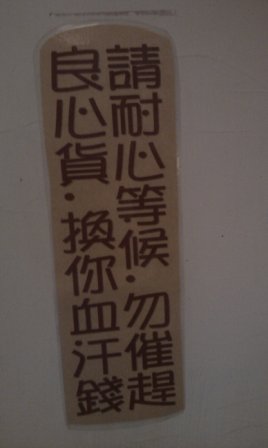 請耐心等候·勿催趕
良心貨·換你血汗錢